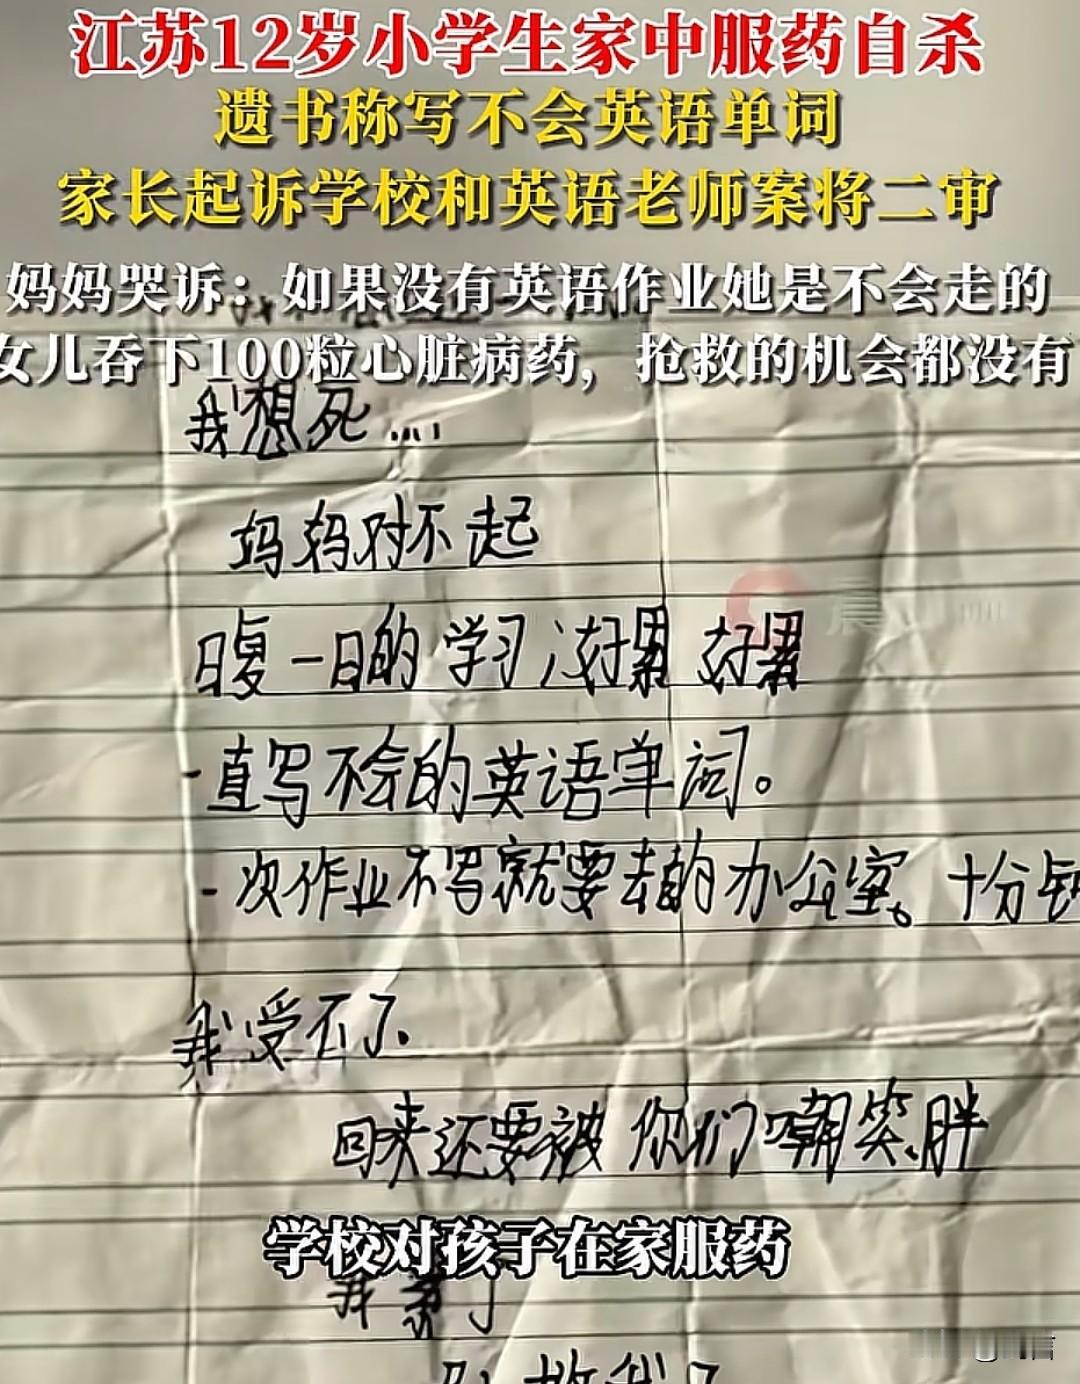 江苏12岁小学生家中服药自杀
遗书称写不会英语单词
家长起诉学校和英语老师案将二审
妈妈哭诉：如果没有英语作业她是不会走的
女儿吞下100粒心脏病药，抢救的机会都没有
我想死....
妈妈对不起
日复一日的学习 好累 好累
一直写不会的英语单词。
一次作业不写就要去的办公室。十分钟
我受不了.
回来还要被你们嘲笑胖
学校对孩子在家服药
我累了